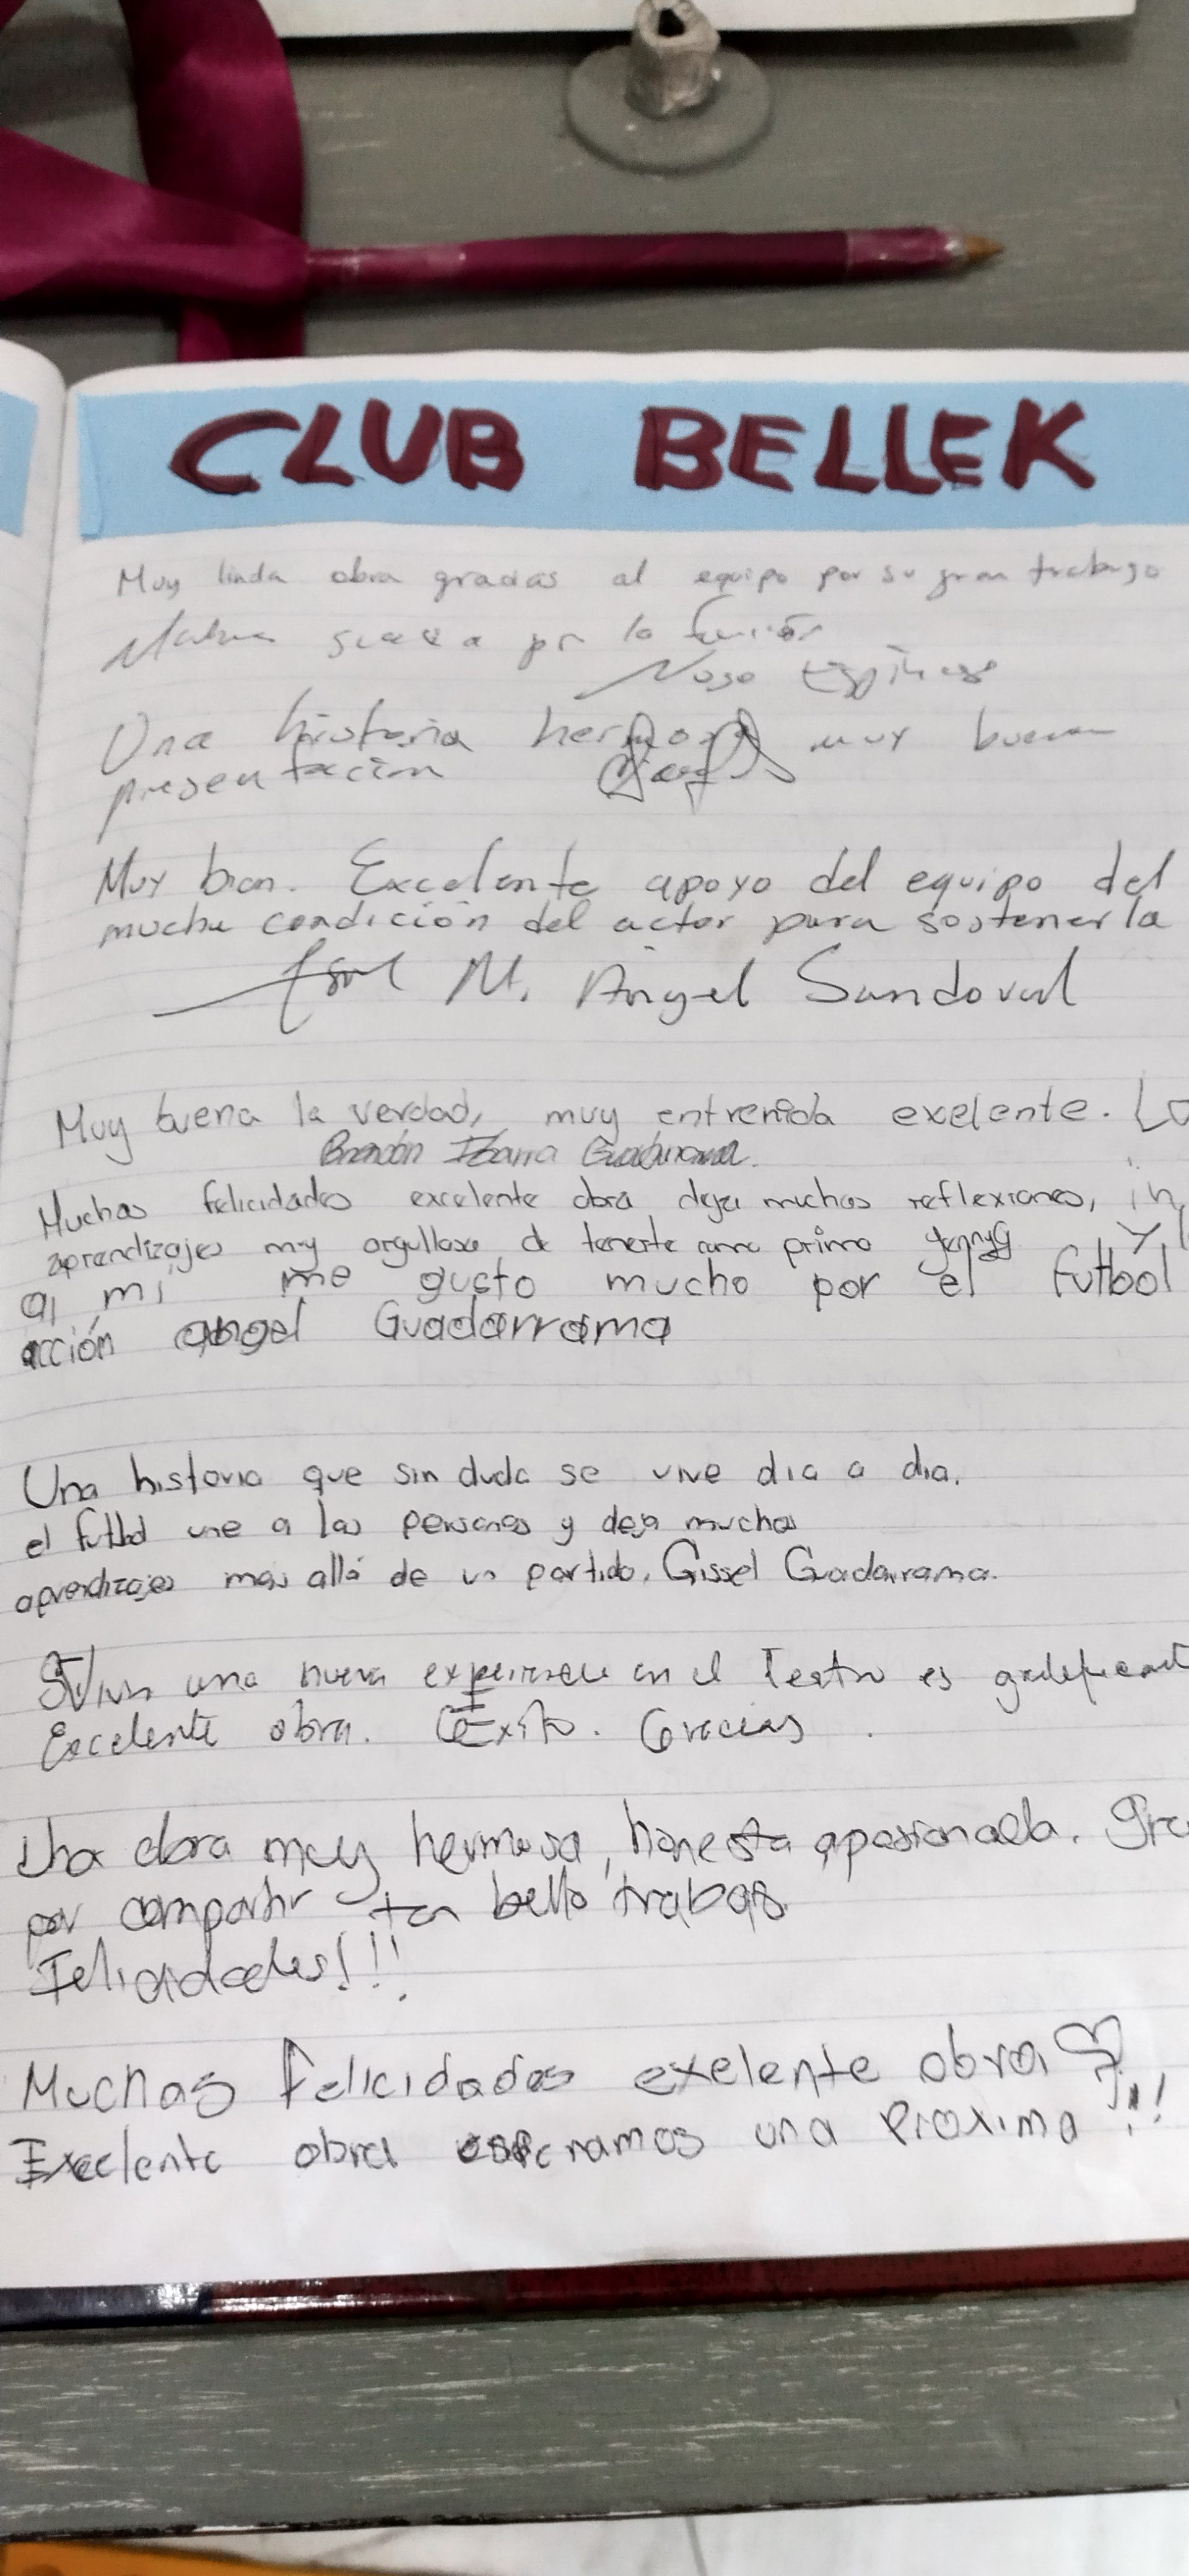 CLUB BELLEK
Muy linda obra gracias al equipo por su gran trabajo
por la función
Una historia hermosa muy buena
presentación
Muy bien. Excelente apoyo del equipo del
mucha condición del actor para sostener la
M. Angel Sandoval
Muy buena la verdad, muy entrenida exelente. Lo
Brandon Ibarra Guadarrama.
Muchas felicidades excelente obra deja muchas reflexiones, in
aprendizajes muy orgullosa de tenerte como primo Jenny G
a mi me gusto mucho por el futbol y
acción angel Guadarrama
Una historia que sin duda se vive dia a dia.
el futbol une a las personas y deja muchos
aprendizajes mas allá de un partido. Gissel Guadarrama.
Vivir una nueva experiencia en el Teatro es gratificant
Excelente obra. Éxito. Gracias.
Una obra muy hermosa, honesta apasionada. Gra
por compartir tan bello trabajo
Felicidades!!!
Muchas felicidades exelente obra ♡
Excelente obra esperamos una proxima !!!